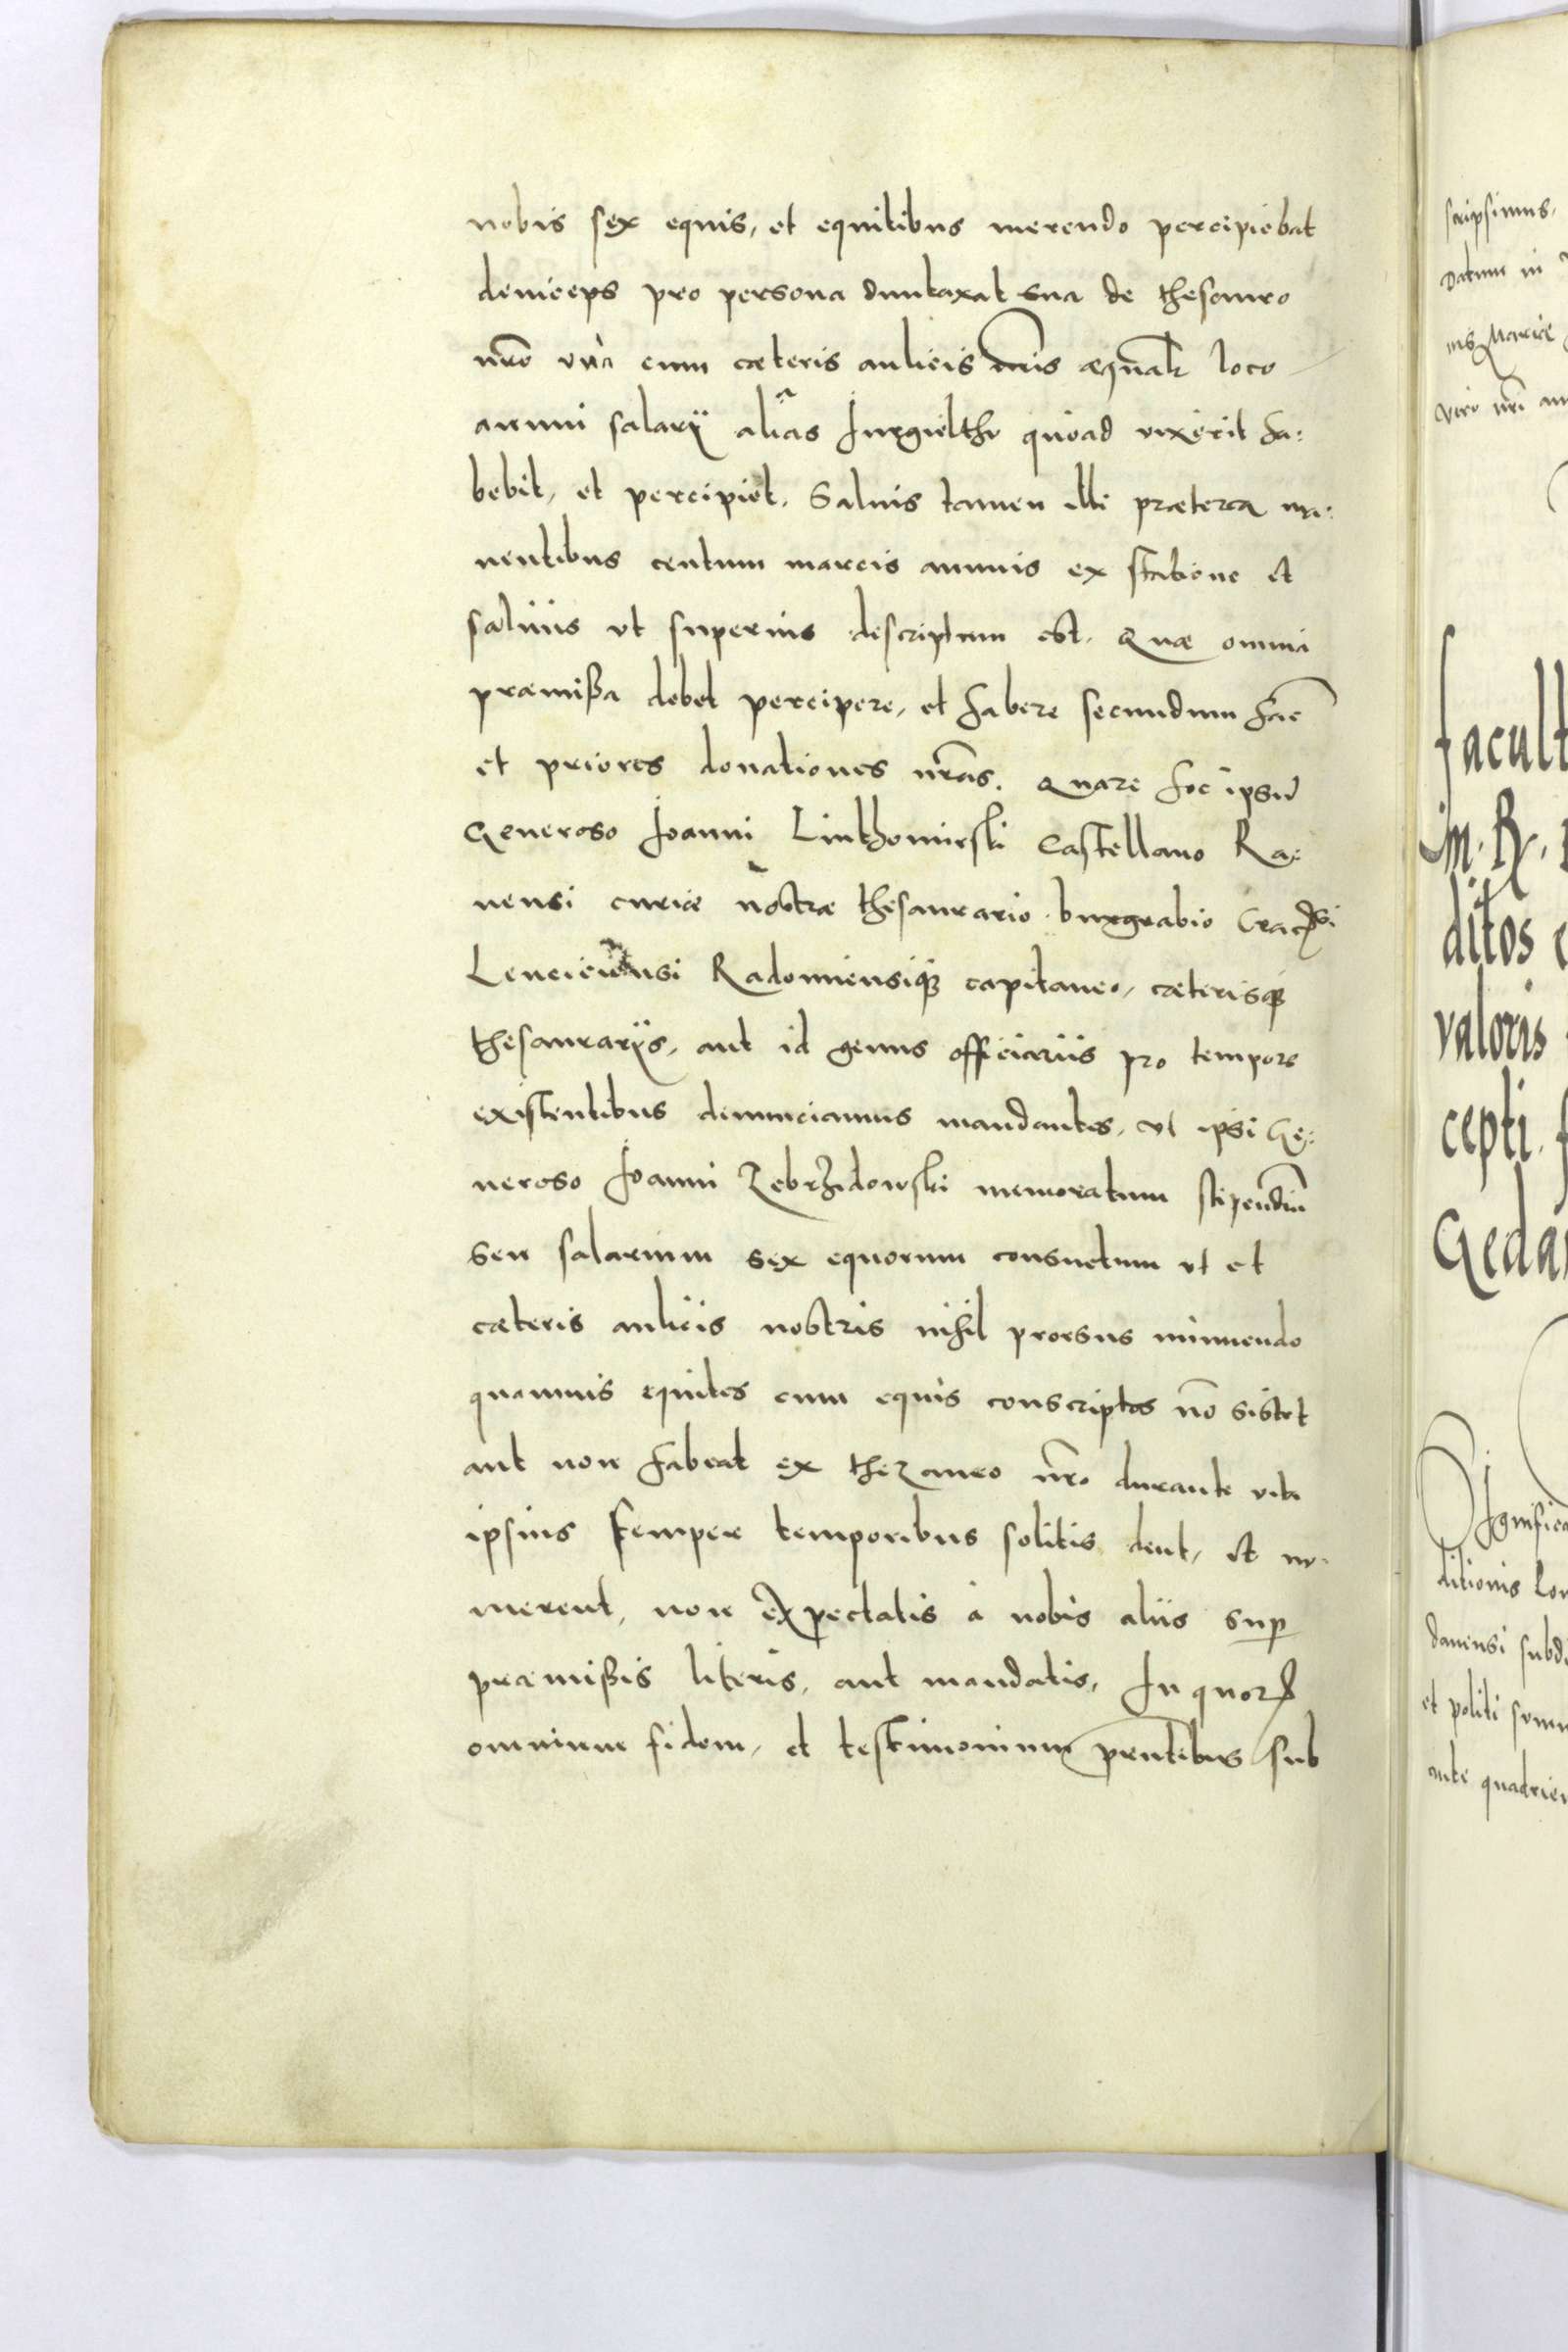 nobis sex equis, et equitibus merendo percipiebat
deinceps pro persona duntaxat sua de thesauro
nr̃o vnà cum cæteris aulicis nr̃is æqual̃r loco
annui salarÿ aliàs Jurgielthu quoad vixerit ha:
bebit, et percipiet. Saluis tamen illi præterea ma:
nentibus centum marcis annuis ex statione et
salinis vt superius descriptum est. Quæ omnia
præmißa debet percipere, et habere secundum hãc
et priores donationes nr̃as. Quare hoc ipsũ
Generoso Joanni Luthomirski Castellano Ra:
uensi curiæ nostræ thesaurario burgrabio Crac̃si
Lenciciensi Radomiensiq₃ capitaneo, cæterisq₃
thesaurarÿs, aut id genus officiariis pro tempore
existentibus denunciamus mandantes, vt ipsi Ge:
neroso Joanni Zebrzidowski memoratum stipendiũ
seu salarium sex equorum consuetum vt et
cæteris aulicis nostris nihil prorsus minuendo
quamuis equites cum equis conscriptos nõ sistet
aut non habeat ex thezauro nr̃o durante vita
ipsius semper temporibus solitis dent, et nu:
merent, non expectatis à nobis aliis sup
præmißis literis, aut mandatis. In quorꝝ
omnium fidem, et testimonium prñtibus sub
scripsimus.
Datum in
nis Mariæ
Viro nr̃i an
facult
M. R.
ditos
valoris
cepti.
Gedan
Significa
ditionis Lon
danensi subdi
et politi somn
ante quadrien